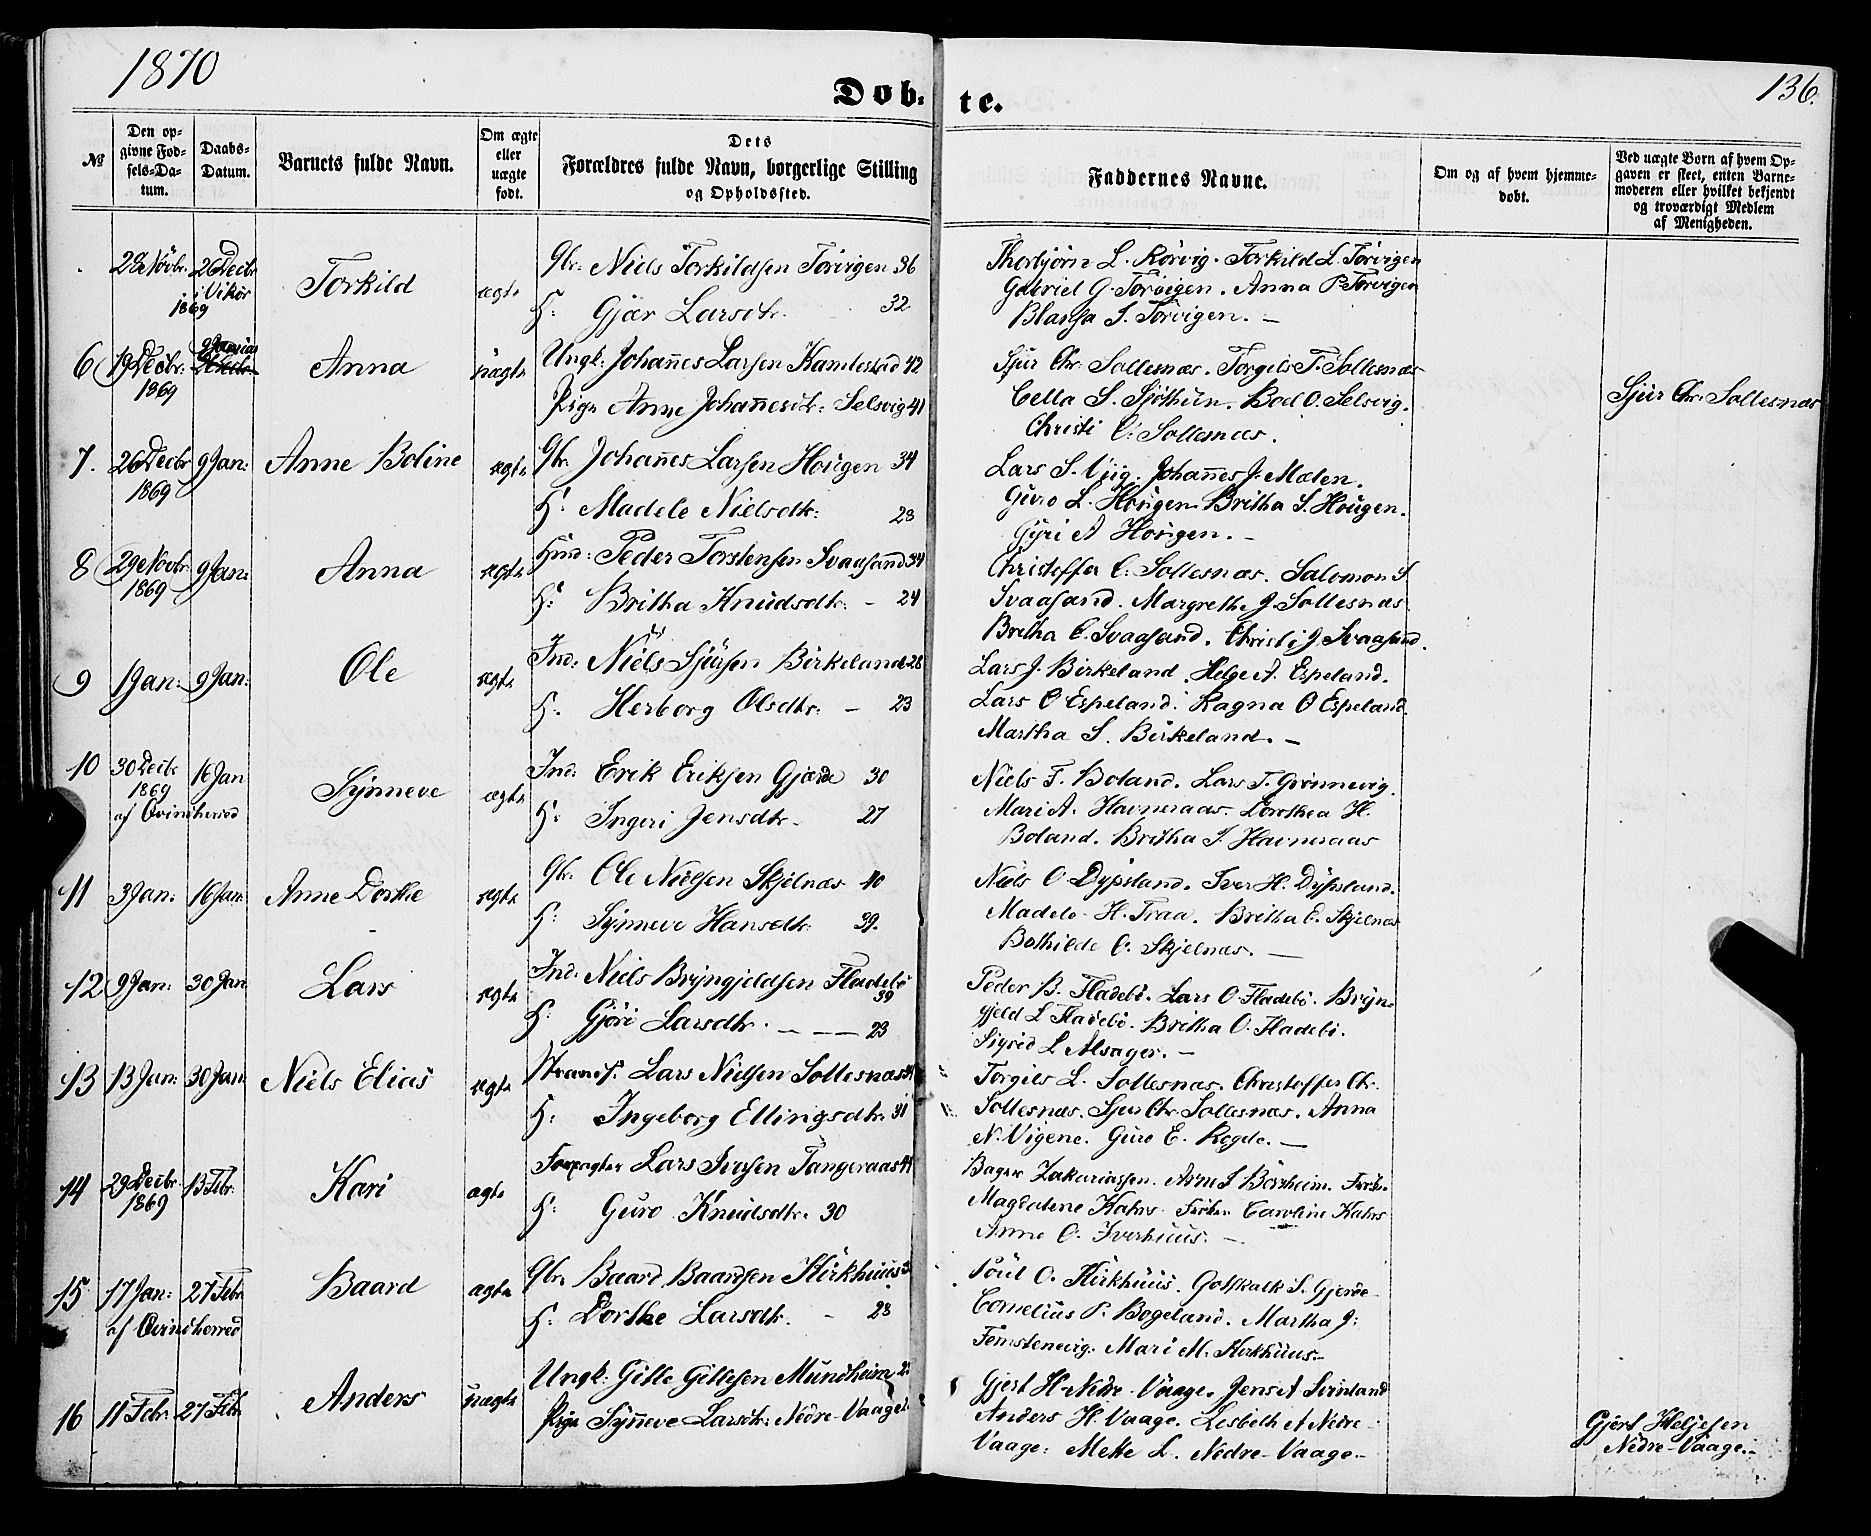 1870
Døb-
te.
136.
No
Den op-
givne Fød-
sels-Da-
tum.
Daabs-
Datum.
Barnets fulde Navn.
Om ægte
eller
uægte
født.
Dets
Forældres fulde Navn, borgerlige Stilling
og Opholdssted.
Faddernes Navne.
Om og af hvem hjemme-
døbt.
Ved uægte Børn af hvem Op-
gaven er skeet, enten Barne-
moderen eller hvilket bekjendt
og troværdigt Medlem
af Menigheden.
28 Novbr. 26 Decbr Torkild ægte Gbr. Niels Torkildsen Torvigen 36
i Vikør
1869
H: Gjør Larsdtr. 32
Thorbjørn L. Rørvig. Torkild L. Torvigen
Gabriel G. Torvigen. Anna P. Torvigen
Blansa S. Torvigen. —
6 19 Decbr. 9 Januar Anna uægte Ungk: Johannes Larsen Kamlesæd 42
1869
Pige Anne Johannesdtr: Selsvig 41
Sjur Chr. Sollesnæs. Torgils T. Sollesnæs
Cella S. Sjøthun. Boel O. Selsvig.
Christi C. Sollesnæs.
Sjur Chr. Sollesnæs
7. 26 Decbr 9 Jan: Anne Boline ægte Gbr. Johannes Larsen Hougen 34
1869
H: Madele Nielsdtr: 23
Lars S. Viig. Johannes J. Mælen.
Guro L. Hougen. Britha S. Hougen.
Gyri A Hougen. —
8 29 Novbr. 9 Jan: Anna ægte Huusm: Peder Torstensen Svaasand 34
1869
H: Britha Knudsdtr: – 24
Christoffer C: Sollesnæs. Salomon S
Svaasand. Margrethe J. Sollesnæs
Bretha C. Svaasand. Christi J. Svaasand.
9 1 Jan: 9 Jan: Ole ægte Ind: Niels Sjursen Birkeland 28
H: Herborg Olsdtr: – 23
Lars J. Birkeland. Helge A. Espeland.
Lars O Espeland. Ragna O Espeland.
Martha S. Birkeland. —
10 30 Decbr 16 Jan Synneve ægte Ind: Erik Eriksen Gjerde 30
1869
af Qvindherred
H: Ingeri Jensdtr. 27
Niels T. Boland. Lars T. Grønnevig.
Mari A. Havneraas. Dorthea H.
Boland. Britha S. Havneraas
11 3 Jan: 16 Jan: Anne Dorthe ægte Gbr. Ole Nielsen Skjelnæs 40
H: Synneve Hansdtr: 39.
Niels O. Dypsland. Iver H. Dypsland.
Madele H. Traa. Britha E. Skjelnæs
Bothilde O. Skjelnæs. —
12 9 Jan: 30 Jan Lars ægte Ind: Niels Bryngjeldsen Fladebø
39
H: Gjøri Larsdtr. — — — 23
Peder B. Fladebø. Lars O. Fladebø. Bryn-
gjeld L Fladebø. Britha O. Fladebø.
Sigrid L Alsager. —
13 13 Jan: 30 Jan: Niels Elias ægte Strands. Lars Nielsen Sollesnæs
H: Ingeborg Ellingsdtr. 31
Torgils L. Sollesnæs. Christoffer Chr.
Sollesnæs. Sjur Chr. Sollesnæs. Anna
N. Vigene. Guro E. Rogde. —
14 29 Decbr. 13 Febr: Kari ægte Forpagter Lars Iversen Tangeraas 44
1869
H: Guro Knudsdtr. 30
Bager Zakariassen. Arne S Børsheim. Frøk.
Magdalene Kahrs. Frøken Caroline Kahrs
Anne O. Iverhuus. —
15 17 Jan: 27 Febr Baard ægte Gbr. Baard Baardsen Kirkhuus
af Qvindherred
H: Dorthe Larsdtr. – 28
Poul O. Kirkhuus. Gotskalk S. Gjerde
Cornelius P. Bogeland. Martha J:
Femstenevig. Mari M. Kirkhuus. –
16 11 Febr. 27 Febr Anders uægte Ungk: Gitle Gitlesen Mundheim
Pige Synneve Larsdtr: Nedre-Vaage
Gjert H. Nedre-Vaage. Jens A Svinland
Anders H. Vaage. Lisbeth A Nedre-
Vaage. Mette L. Nedre-Vaage. –
Gjert Heljesen
Nedre-Vaage. –